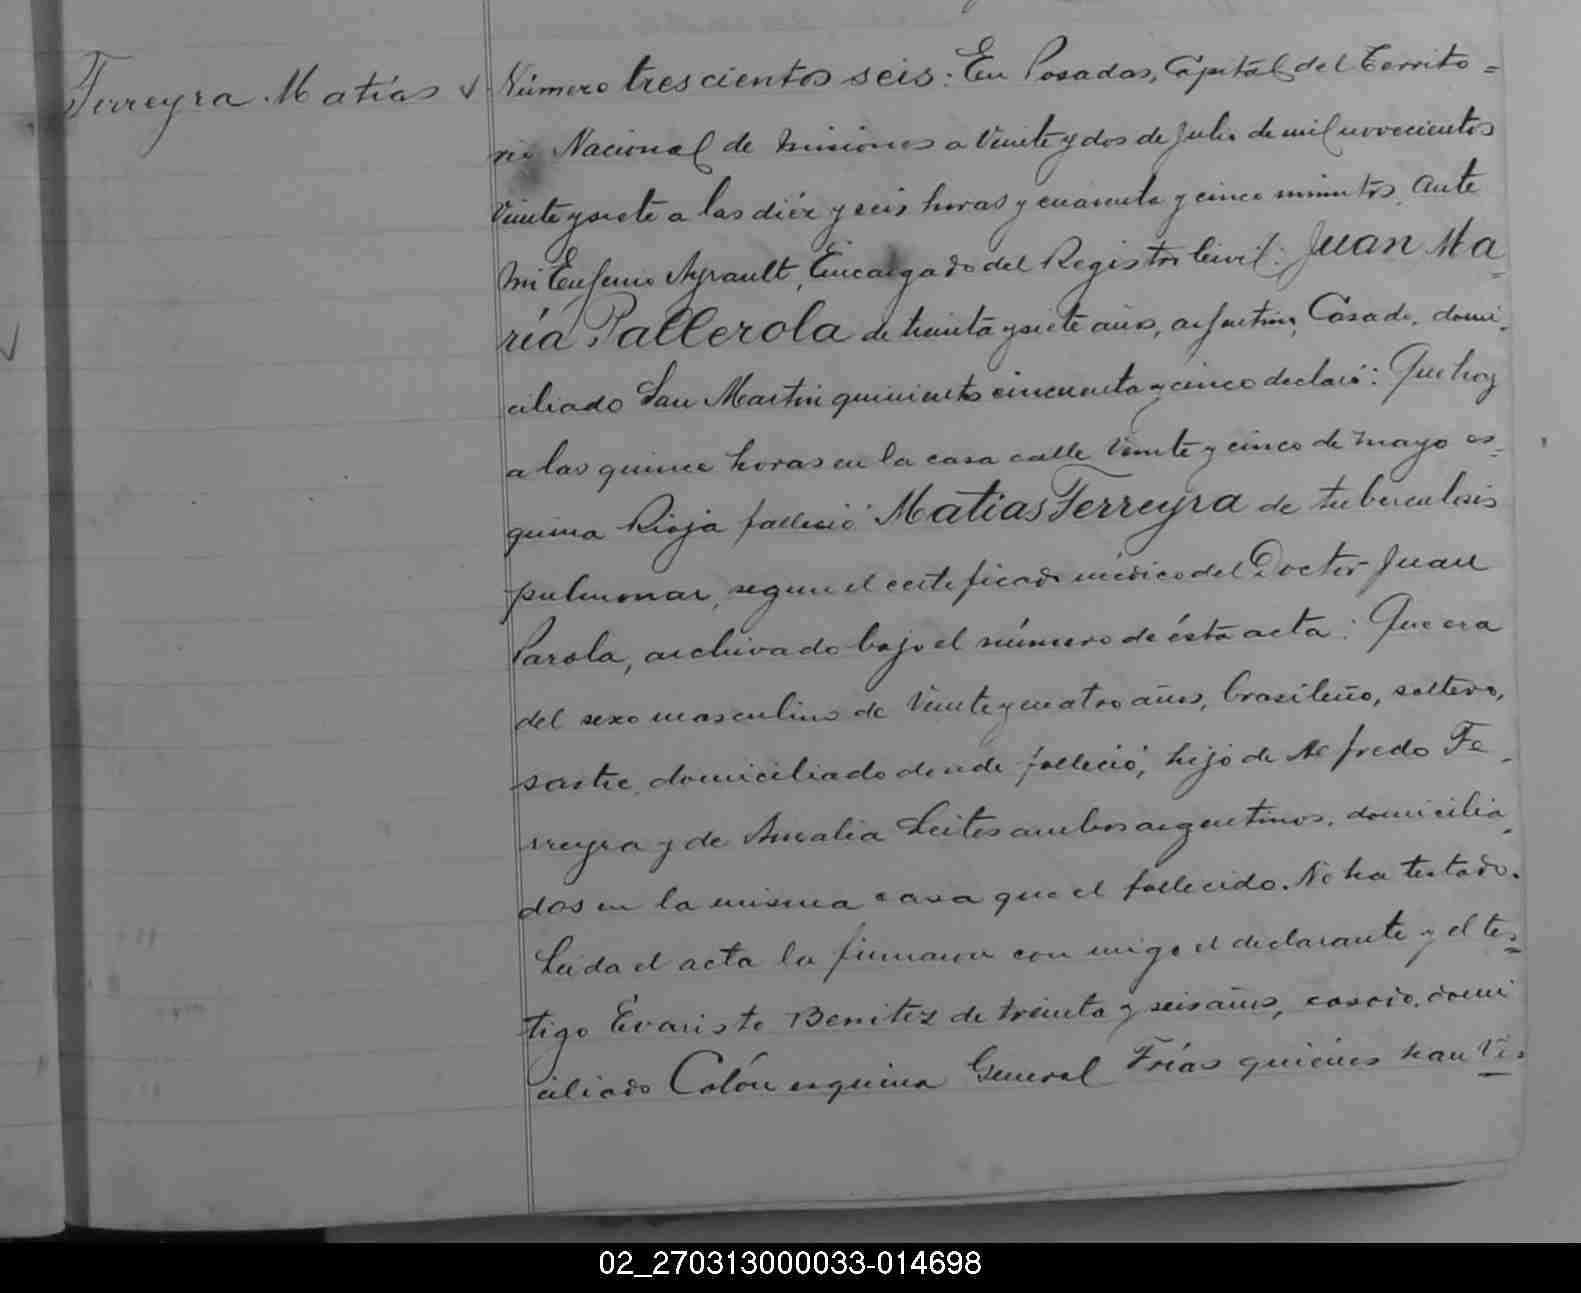 Ferreyra Matías
Número trescientos seis: En Posadas, Capital del Territo=
rio Nacional de Misiones a Veinte y dos de Julio de mil novecientos
Veinte y siete a las diéz y seis horas y cuarenta y cinco minutos, ante
mi Eugenio Ayrault, Encargado del Registro Civil: Juan Ma=
ría Pallerola de treinta y siete años, argentino, Casado, domi-
ciliado San Martin quinientos cincuenta y cinco declaró: Que hoy
a las quince horas en la casa calle Veinte y cinco de Mayo es=
quina Rioja falleció Matias Ferreyra de tuberculosis
pulmonar, segun el certificado médico del Doctor Juan
Parola, archivado bajo el número de ésta acta: Que era
del sexo masculino de Veinte y cuatro años, brasileño, soltero,
sastre, domiciliado donde falleció, hijo de Alfredo Fe-
rreyra y de Amalia Leites ambos argentinos, domicilia-
dos en la misma casa que el fallecido. No ha testado.
Leida el acta la firmaron con migo el declarante y el tes=
tigo Evaristo Benitez de treinta y seis años, casado, domi
ciliado Colón esquina General Frías quiénes han Vis
02_270313000033-014698